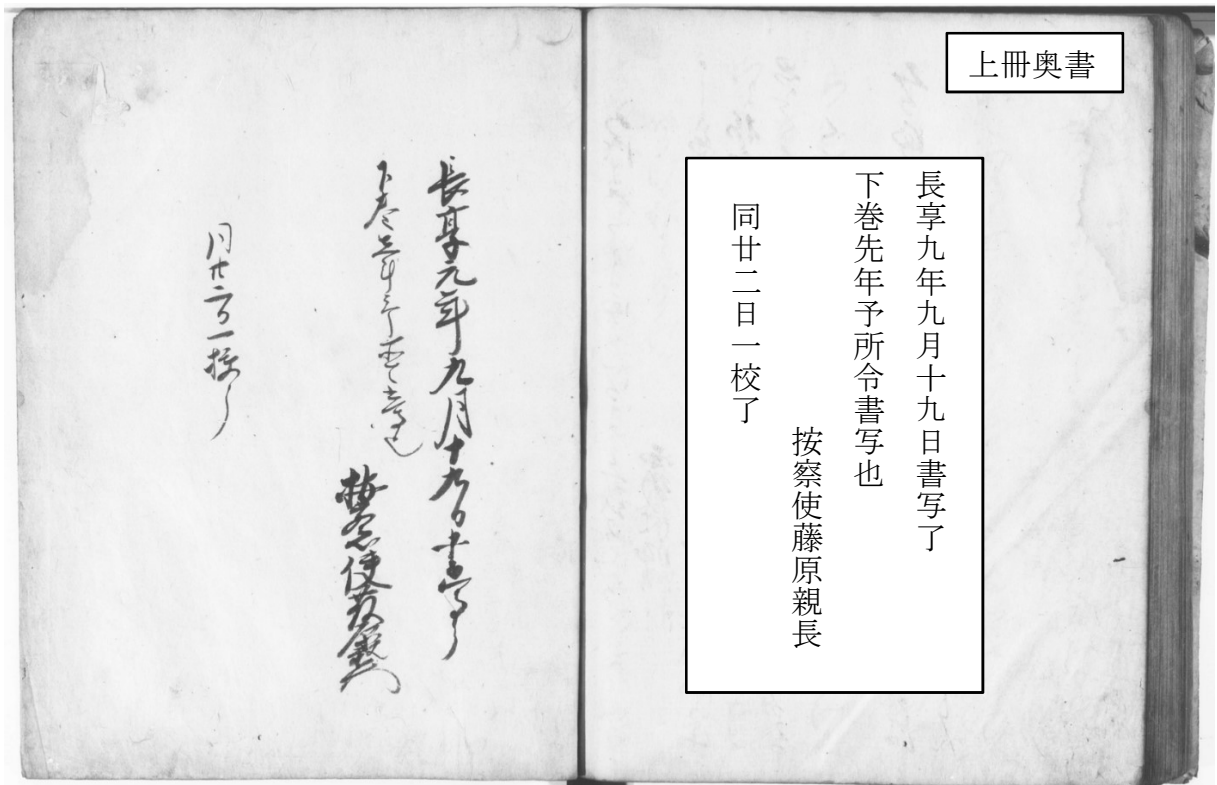 上冊奥書
長享九年九月十九日書写了
下巻先年予所令書写也
按察使藤原親長
同廿二日一校了
長享元年九月十九日書写了
下巻先年予所令書写也
按察使藤原親長
同廿二日一校了